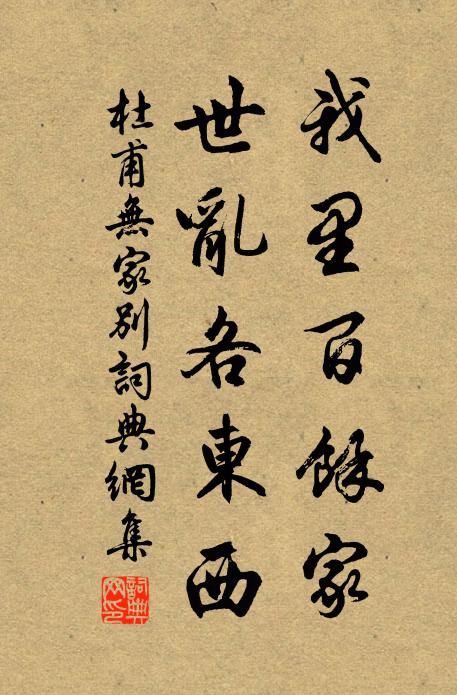 我里百餘家
世亂各東西
杜甫無家別詞典網集
詞典網印